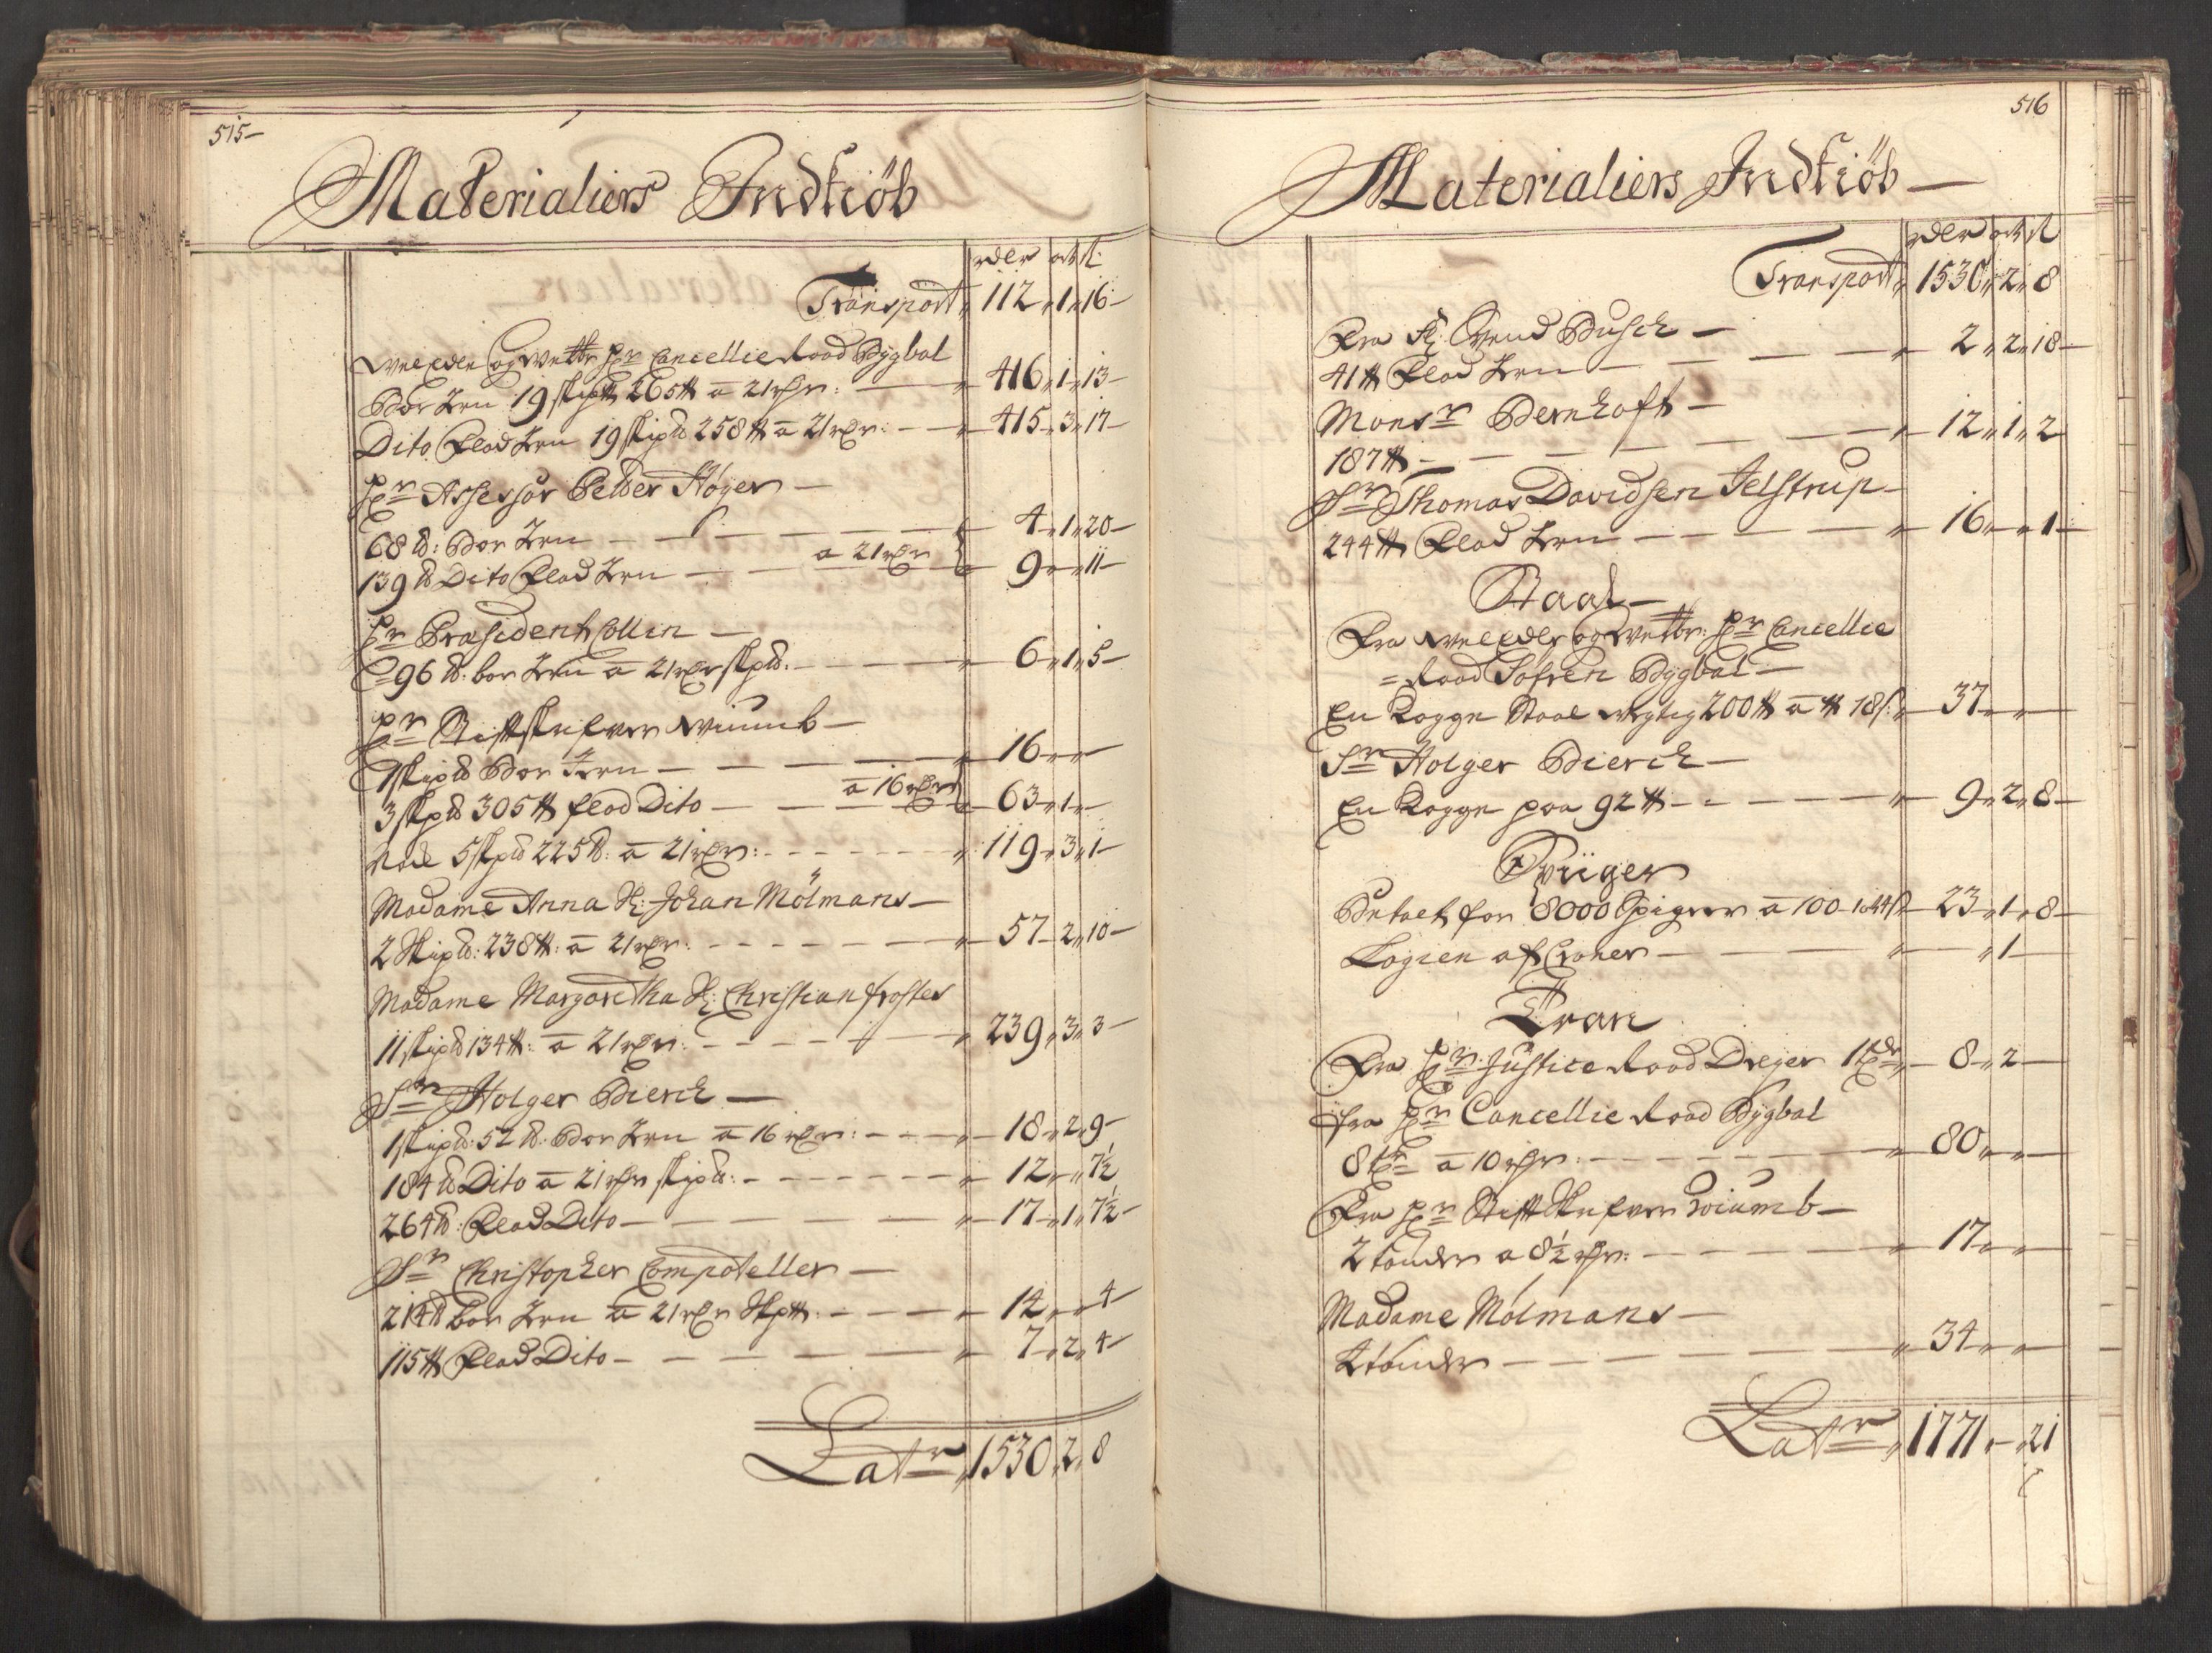 515
Materialiers Indkiöb
rdlr ort s:
Transport 112 1 16
Welædle og Welbr: Hr Cancellie Raad Bÿgbal
Bor Jrn 19 skip℔ 265 ℔ a 21 rdr: 416 1 13
Dito Flad Jrn 19 skip℔ 258 ℔ a 21 rdr: 415 3 17
Hr Assessor Peder Höyer
68 ℔: Bor Jrn 4 1 20
a 21 rdr
139 ℔ Dito Flad Jrn 9 " 11
Hr Præsident Collin
96 ℔: bor Jrn a 21 rdr skp℔: 6 1 5
Hr Stiftskrifver Wiumb
1 skip℔ Bor Jrn 16 " "
a 16 rdr
3 skp℔ 305 ℔ flad Dito 63 1 "
Noch 5 skp℔ 225 ℔: a 21 rdr: 119 3 1
Madame Anna Sl: Johan Mölmans
2 Skip℔: 238 ℔: a 21 rdr: 57 2 10
Madame Margaretha Sl: Christian frostes
11 skip℔ 134 ℔: a 21 rdr: 239 3 3
Sr Holger Bierch
1 skip℔: 52 ℔: Bor Jrn a 16 rdr: 18 2 9
184 ℔ Dito a 21 rdr skip℔: 12 " 7½
264 ℔: Flad Dito 17 1 7½
Sr Christopher Compoteller
214 ℔ bor Jrn a 21 rdr Skp℔: 14 " 4
115 ℔ Flad Dito 7 2 4
Latr 1530 2 8
516
Materialiers Indkiöb
rdlr ort s
Transport 1530 2 8
Fra Sl: Svend Busch
41 ℔ Flad Jrn 2 2 18
Monsr Bernhoft
187 ℔ 12 1 2
Sr Thomas Davidsen Jelstrup
244 ℔ Flad Jrn 16 " 1
Staal
Fra Welædle og Welbr: Hr Cancellie
= Raad Söfren Bÿgbal
En Kagge Staal vegtig 200 ℔ a ℔ 18 s: 37 " "
Sr Holger Bierch
En Kagge paa 92 ℔ 9 2 8
Spiiger
Betalt for 8000 Spiger a 100 23 1 8
1
Tran
Fra Hr Justice Raad Dreyer 1 tde 8 2
fra Hr Cancellie Raad Bÿgbal
8 tr a 10 rdr: 80 " "
Fra Hr Stiftskrifver Wiumb
2 tönder a 8½ rdr: 17 " "
Madame Mölmans
4 tönder 34 " "
Latr 1771 " 21